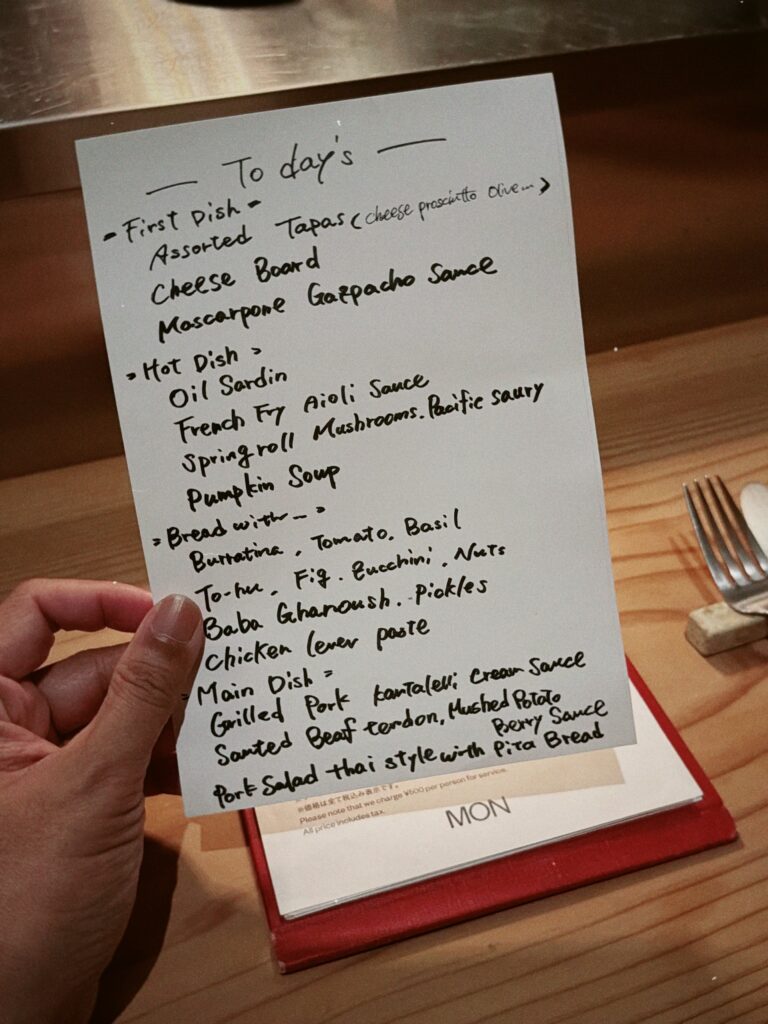 — To day's —
- First Dish -
Assorted Tapas (cheese prosciutto Olive...)
Cheese Board
Mascarpone Gazpacho Sauce
- Hot Dish -
Oil Sardin
French Fry Aioli Sauce
Spring roll Mushrooms. Pacific saury
Pumpkin Soup
- Bread with... -
Burratina. Tomato. Basil
To-hu. Fig. Zucchini. Nuts
Baba Ghanoush. Pickles
Chicken lever paste
- Main Dish -
Grilled Pork Cream Sauce
Santed Beaf tendon, Mushed Potato
Berry Sauce
Pork Salad thai style with Pita Bread
※価格は全て税込み表示です。
Please note that we charge ¥600 per person for service.
All price includes tax.
MON